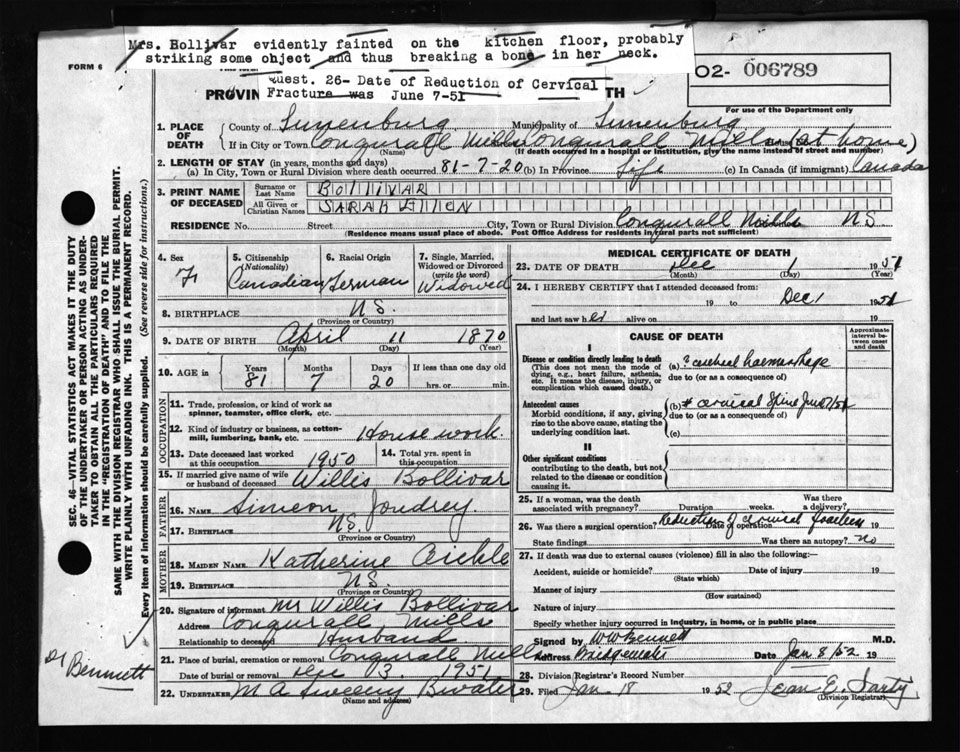 Mrs. Bollivar evidently fainted on the kitchen floor, probably
striking some object and thus breaking a bone in her neck.
FORM 6
Quest. 26- Date of Reduction of Cervical
Fracture was June 7-51
PROVIN
TH
O2- 006789
For use of the Department only
1. PLACE OF DEATH
County of Lunenburg Municipality of Lunenburg
If in City or Town Conquerall Mills Conquerall Mills (at home)
(Name) (If death occurred in a hospital or institution, give the name instead of street and number)
2. LENGTH OF STAY (in years, months and days)
(a) In City, Town or Rural Division where death occurred 81-7-20 (b) In Province Life (c) In Canada (if immigrant) Canada
3. PRINT NAME OF DECEASED
Surname or Last Name BOLLIVAR
All Given or Christian Names SARAH ELLEN
RESIDENCE No. Street City, Town or Rural Division Conquerall Mills NS
(Residence means usual place of abode. Post Office Address for residents in rural parts not sufficient)
4. Sex F
5. Citizenship (Nationality) Canadian
6. Racial Origin German
7. Single, Married, Widowed or Divorced (write the word) Widowed
8. BIRTHPLACE N.S.
(Province or Country)
9. DATE OF BIRTH April 11 1870
(Month) (Day) (Year)
10. AGE in Years Months Days If less than one day old
81 7 20 hrs. or min.
OCCUPATION
11. Trade, profession, or kind of work as spinner, teamster, office clerk, etc.
12. Kind of industry or business, as cotton-mill, lumbering, bank, etc. House work
13. Date deceased last worked at this occupation 1950
14. Total yrs. spent in this occupation
15. If married give name of wife or husband of deceased Willis Bollivar
FATHER
16. NAME Simeon Joudrey
17. BIRTHPLACE N.S.
(Province or Country)
MOTHER
18. MAIDEN NAME Katherine
19. BIRTHPLACE N.S.
(Province or Country)
20. Signature of informant Mr Willis Bollivar
Address Conquerall Mills
Relationship to deceased Husband
21. Place of burial, cremation or removal Conquerall Mills
Date of burial or removal Dec 3 1951
22. UNDERTAKER M A Sweeny Bwater
(Name and address)
MEDICAL CERTIFICATE OF DEATH
23. DATE OF DEATH Dec 1 1951
(Month) (Day)
24. I HEREBY CERTIFY that I attended deceased from:
19 to Dec 1 1951
and last saw her alive on 19
CAUSE OF DEATH
Approximate interval between onset and death
I
Disease or condition directly leading to death
(This does not mean the mode of dying, e.g., heart failure, asthenia, etc. It means the disease, injury, or complication which caused death.)
(a) ? cerebral haemorrhage
due to (or as a consequence of)
Antecedent causes
Morbid conditions, if any, giving rise to the above cause, stating the underlying condition last.
(b) # cervical Spine June 7/51
due to (or as a consequence of)
(c)
II
Other significant conditions
contributing to the death, but not related to the disease or condition causing it.
25. If a woman, was the death associated with pregnancy? Duration weeks. Was there a delivery?
26. Was there a surgical operation? Reduction of cervical fracture Date of operation 19
State findings Was there an autopsy? no
27. If death was due to external causes (violence) fill in also the following:—
Accident, suicide or homicide? Date of injury 19
(State which)
Manner of injury
(How sustained)
Nature of injury
Specify whether injury occurred in industry, in home, or in public place
Signed by W W Bennett M.D.
Address Bridgewater Date Jan 8/52
28. Division Registrar's Record Number
29. Filed Jan 18 1952 Jean E.
(Division Registrar)
SEC. 46—VITAL STATISTICS ACT MAKES IT THE DUTY
OF THE UNDERTAKER OR PERSON ACTING AS UNDER-
TAKER TO OBTAIN ALL THE PARTICULARS REQUIRED
IN THE "REGISTRATION OF DEATH" AND TO FILE THE
SAME WITH THE DIVISION REGISTRAR WHO SHALL ISSUE THE BURIAL PERMIT.
WRITE PLAINLY WITH UNFADING INK. THIS IS A PERMANENT RECORD.
Every item of information should be carefully supplied. (See reverse side for instructions.)
Dr Bennett